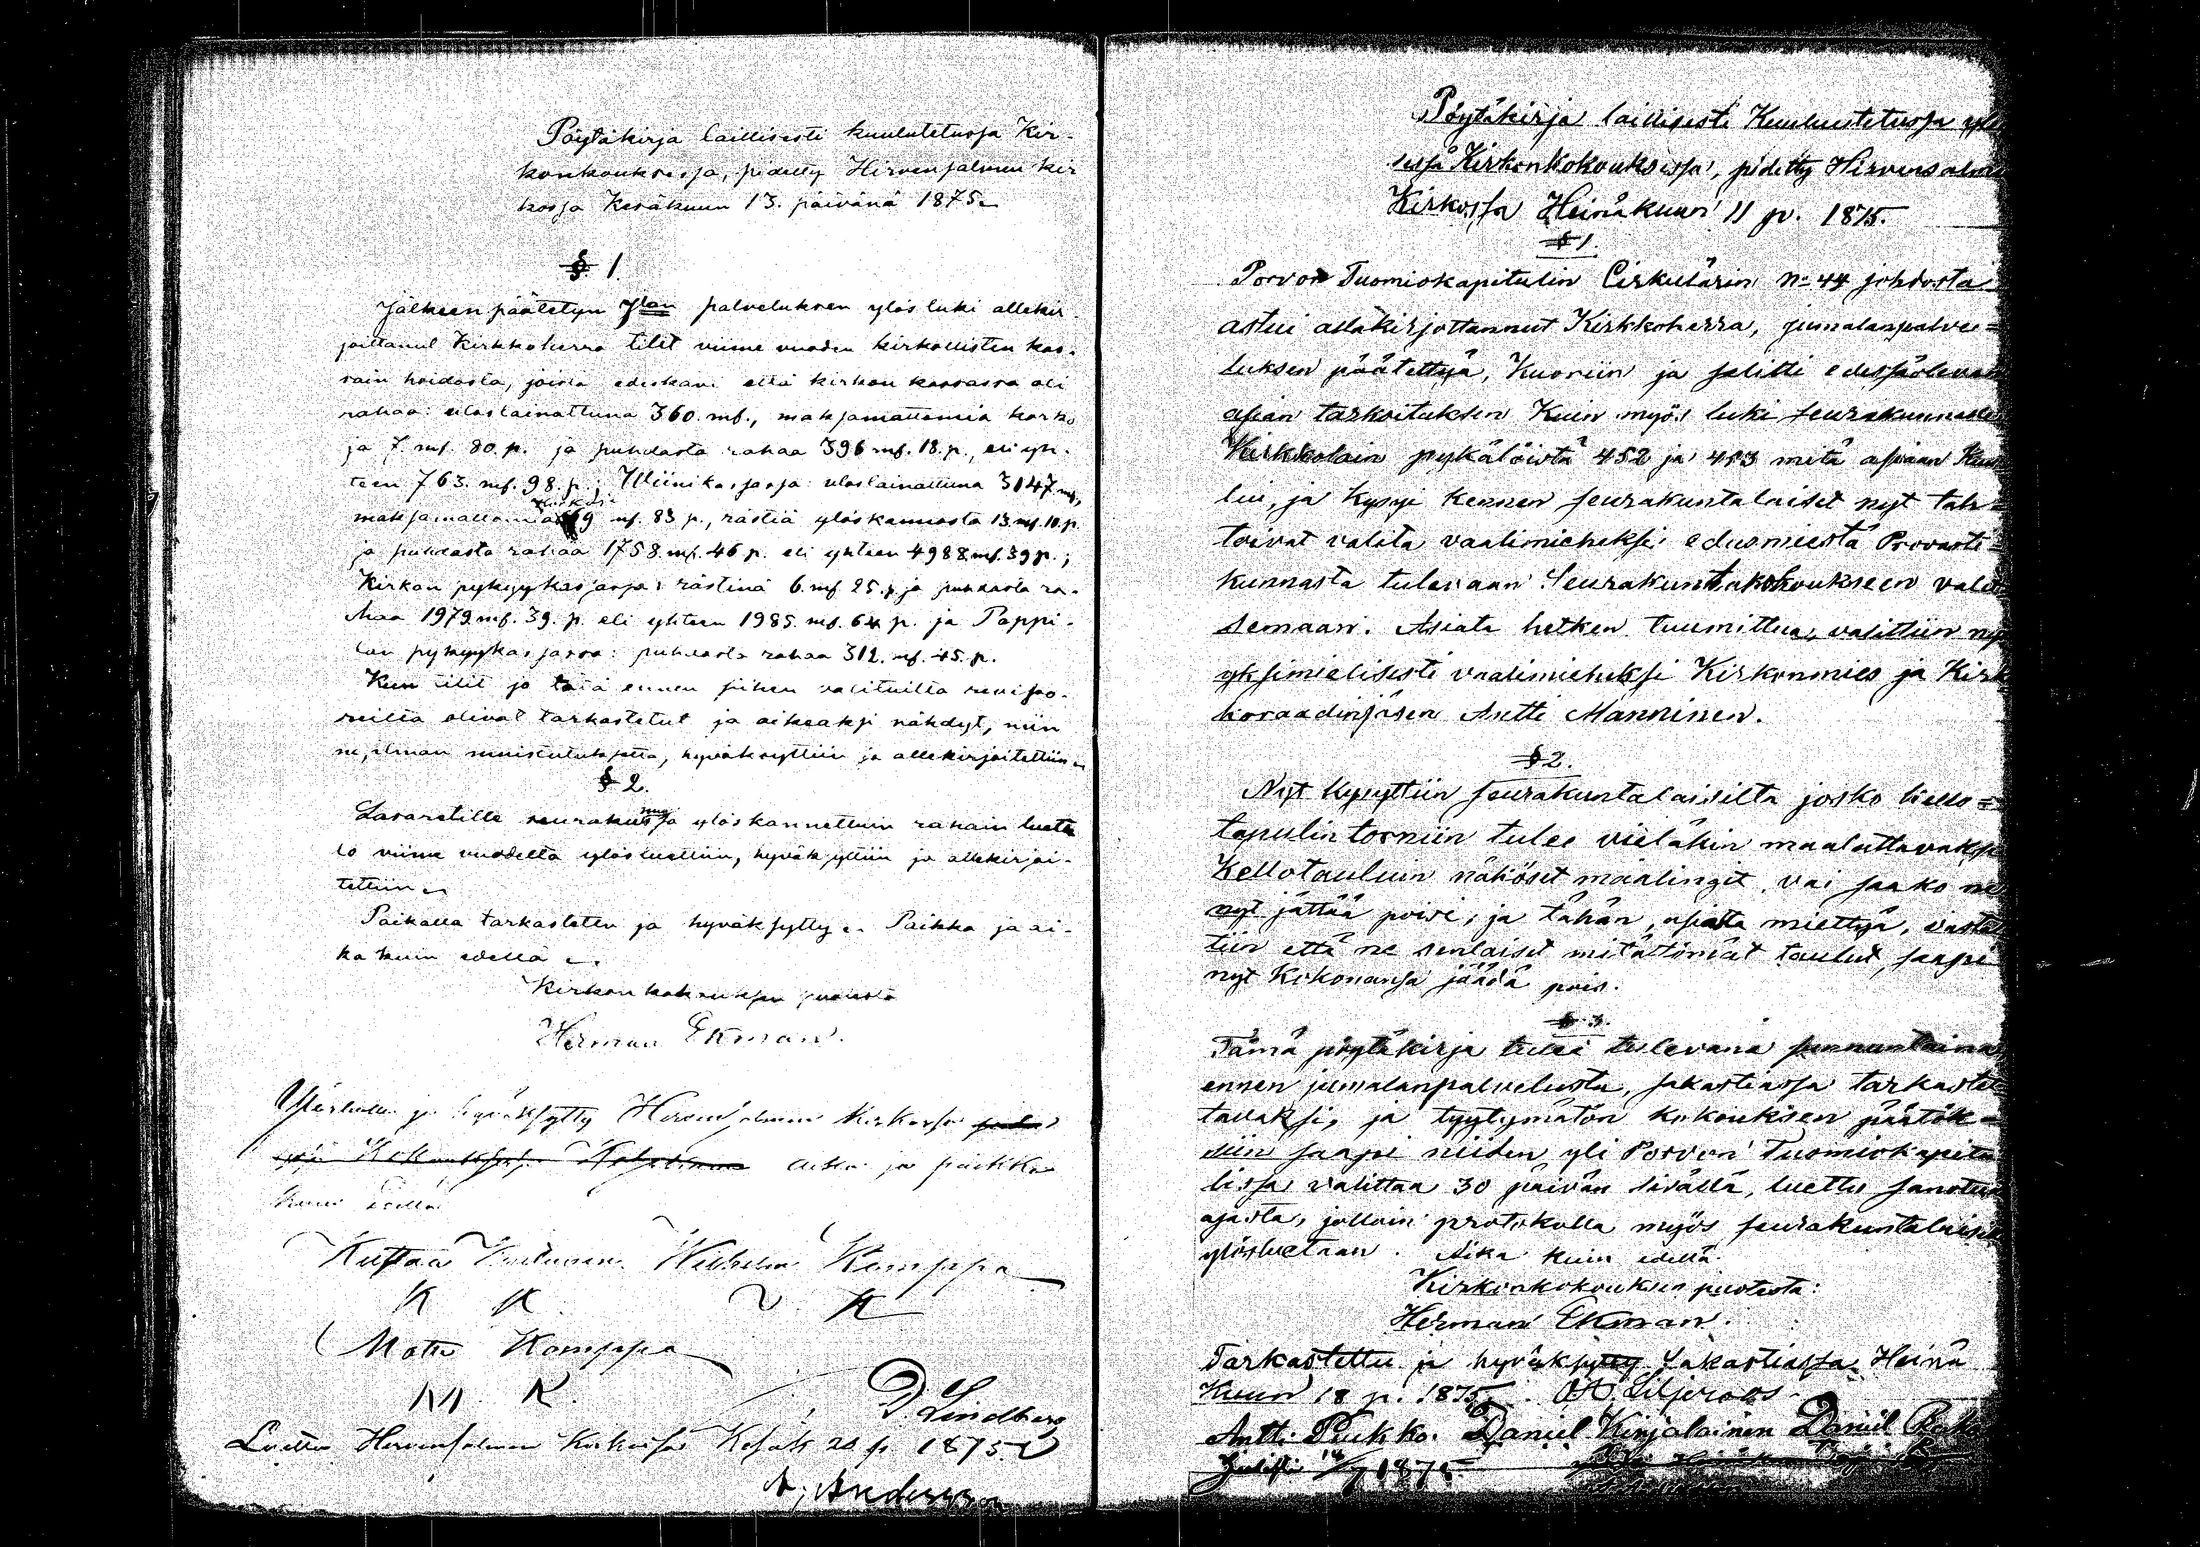 Pöytäkirja laillisesti kuulutetussa Kir-
konkouksessa, pidetty Hirvensalmen kir
kossa Kesäkuun 13. päivänä 1875.
§ 1.
Jälkeen päätetyn Jlan palveluksen ylös luki allekir-
joittanut Kirkkoherra tilit viime vuoden kirkollisten kas-
sain hoidosta, joista edeskävi että kirkon kassassa oli
rahaa: uloslainattuna 360 mk., maksamattomia korko
ja 7. mk. 80. p. ja puhdasta rahaa 396 mk. 18. p., eli yh-
teen 763. mk. 98. p.; Wiinikassassa uloslainattuna 3147 mk,
maksamattomia korkoja 69 mk. 83 p., rästiä ylöskannosta 13 mk. 10. p.
ja puhdasta rahaa 1758. mk. 46 p. eli yhteen 4988 mk. 39 p.;
Kirkon pyhyyskassassa: rästinä 6. mk 25. p. ja puhdasta ra-
haa 1979 mk. 39. p. eli yhteen 1985. mk. 64 p. ja Pappi-
lan pyhyyskassassa: puhdasta rahaa 312. mk. 45. p.
Kun tilit jo tätä ennen siihen valituilta revisso-
reilta olivat tarkastetut ja oikeaksi nähdyt, niin
ne, ilman muistutuksetta, hyväksyttiin ja allekirjoitettiin
§ 2.
Lasaretille seurakunnassa ylöskannettuin rahain luette
lo viime vuodelta ylösluettiin, hyväksyttiin ja allekirjoi-
tettiin
Paikalla tarkastettu ja hyväksytty. Paikka ja ai-
ka kuin edellä
Kirkonkokouksen puolesta
Herman Ekman.
ja hyväksytty Hirvensalmen kirkossa
aika ja paikka
kuin edellä
Kustaa Wilhelm Kamppa
K K. W. K
Matti Kamppa
M K.
D. Lindberg
Luettu Hirvensalmen kirkossa Kesäk 20 p. 1875
A. Andersson
Pöytäkirja laillisesti Kuulutetussa
sessä Kirkonkokouksessa, pidetty Hirvensalmen
Kirkossa Heinäkuun 11 p. 1875.
§ 1.
Porvon Tuomiokapitulin Cirkulärin No 44 johdosta
astui allakirjottannut Kirkkoherra, jumalanpalve=
luksen päätettyä, Kuoriin ja selitti edessäolevan
asian tarkoituksen Kuin myös luki seurakunnalle
Kirkkolain pykälöistä 452 ja 453 mitä asiaan Kuu
lui, ja kysyi kennen seurakuntalaiset nyt tah=
toivat valita vaalimieheksi edusmiestä Provasti=
kunnasta tulevaan Seurakuntakokoukseen valit=
semaan. Asiata hetken tuumittua, valittiin nyt
yksimielisesti vaalimieheksi Kirkonmies ja Kirk
koraadinjäsen Antti Manninen.
§ 2.
Nyt kysyttiin seurakuntalaisilta josko kello=
tapulin torniin tulee vieläkin maalattavaksi
Kellotauluin näköset maalingit, vai saako ne
nyt jättää poisi, ja tähän, asiata miettyä, vastat
tiin että ne senlaiset mitättömät taulut, saapi
nyt Kokonansa jäädä pois.
§ 3.
Tämä pöytäkirja tulee tulevana sunnuntaina
ennen jumalanpalvelusta, sakastiassa tarkastet
tavaksi, ja tyytymätön kokouksen päätök=
siin saapi niiden yli Porvon Tuomiokapitu
lissa valittaa 30 päivän sisällä, luettu sanotusta
ajasta, jolloin protokolla myös seurakuntalaisille
ylösluetaan. Aika kuin edellä.
Kirkonkokouksen puolesta:
Herman Ekman.
Tarkastettu ja hyväksytty Sakastiassa Heinä
Kuun 18 p. 1875. O. W. Liljeroos.
Antti Pukko. Daniel Kinjalainen Daniel
18/7 1875